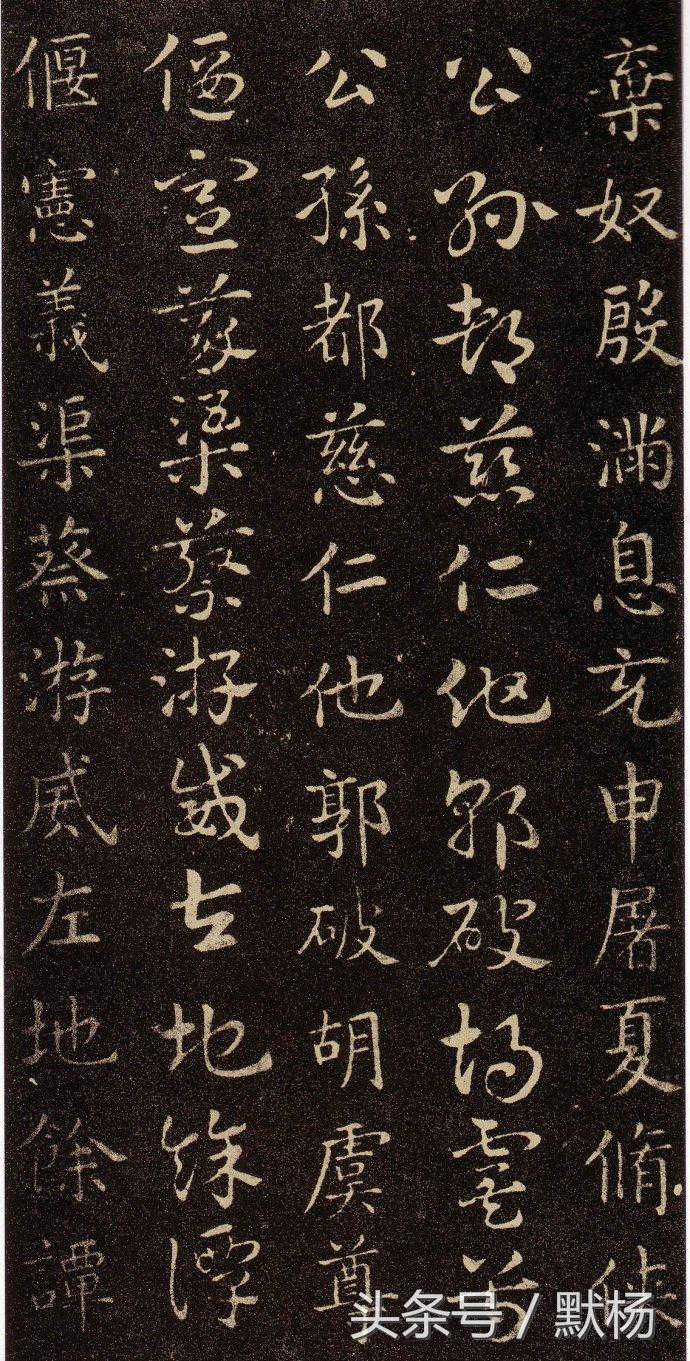 棄奴殷滿息充申屠夏脩俠
公孫都慈仁他郭破胡虞尊
公孫都慈仁他郭破胡虞尊
偃憲義渠蔡游威左地餘譚
偃憲義渠蔡游威左地餘譚
头条号 / 默杨